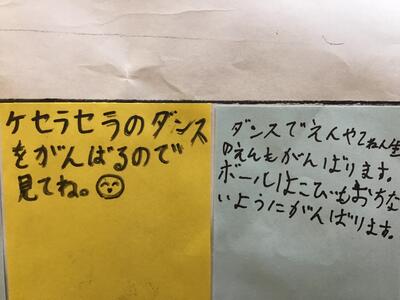 ケセラセラのダンス
をがんばるので
見てね。
ダンスでえんや ねん生
ゆえんもがんばります。
ボールはこびもおちな
いようにがんばります。